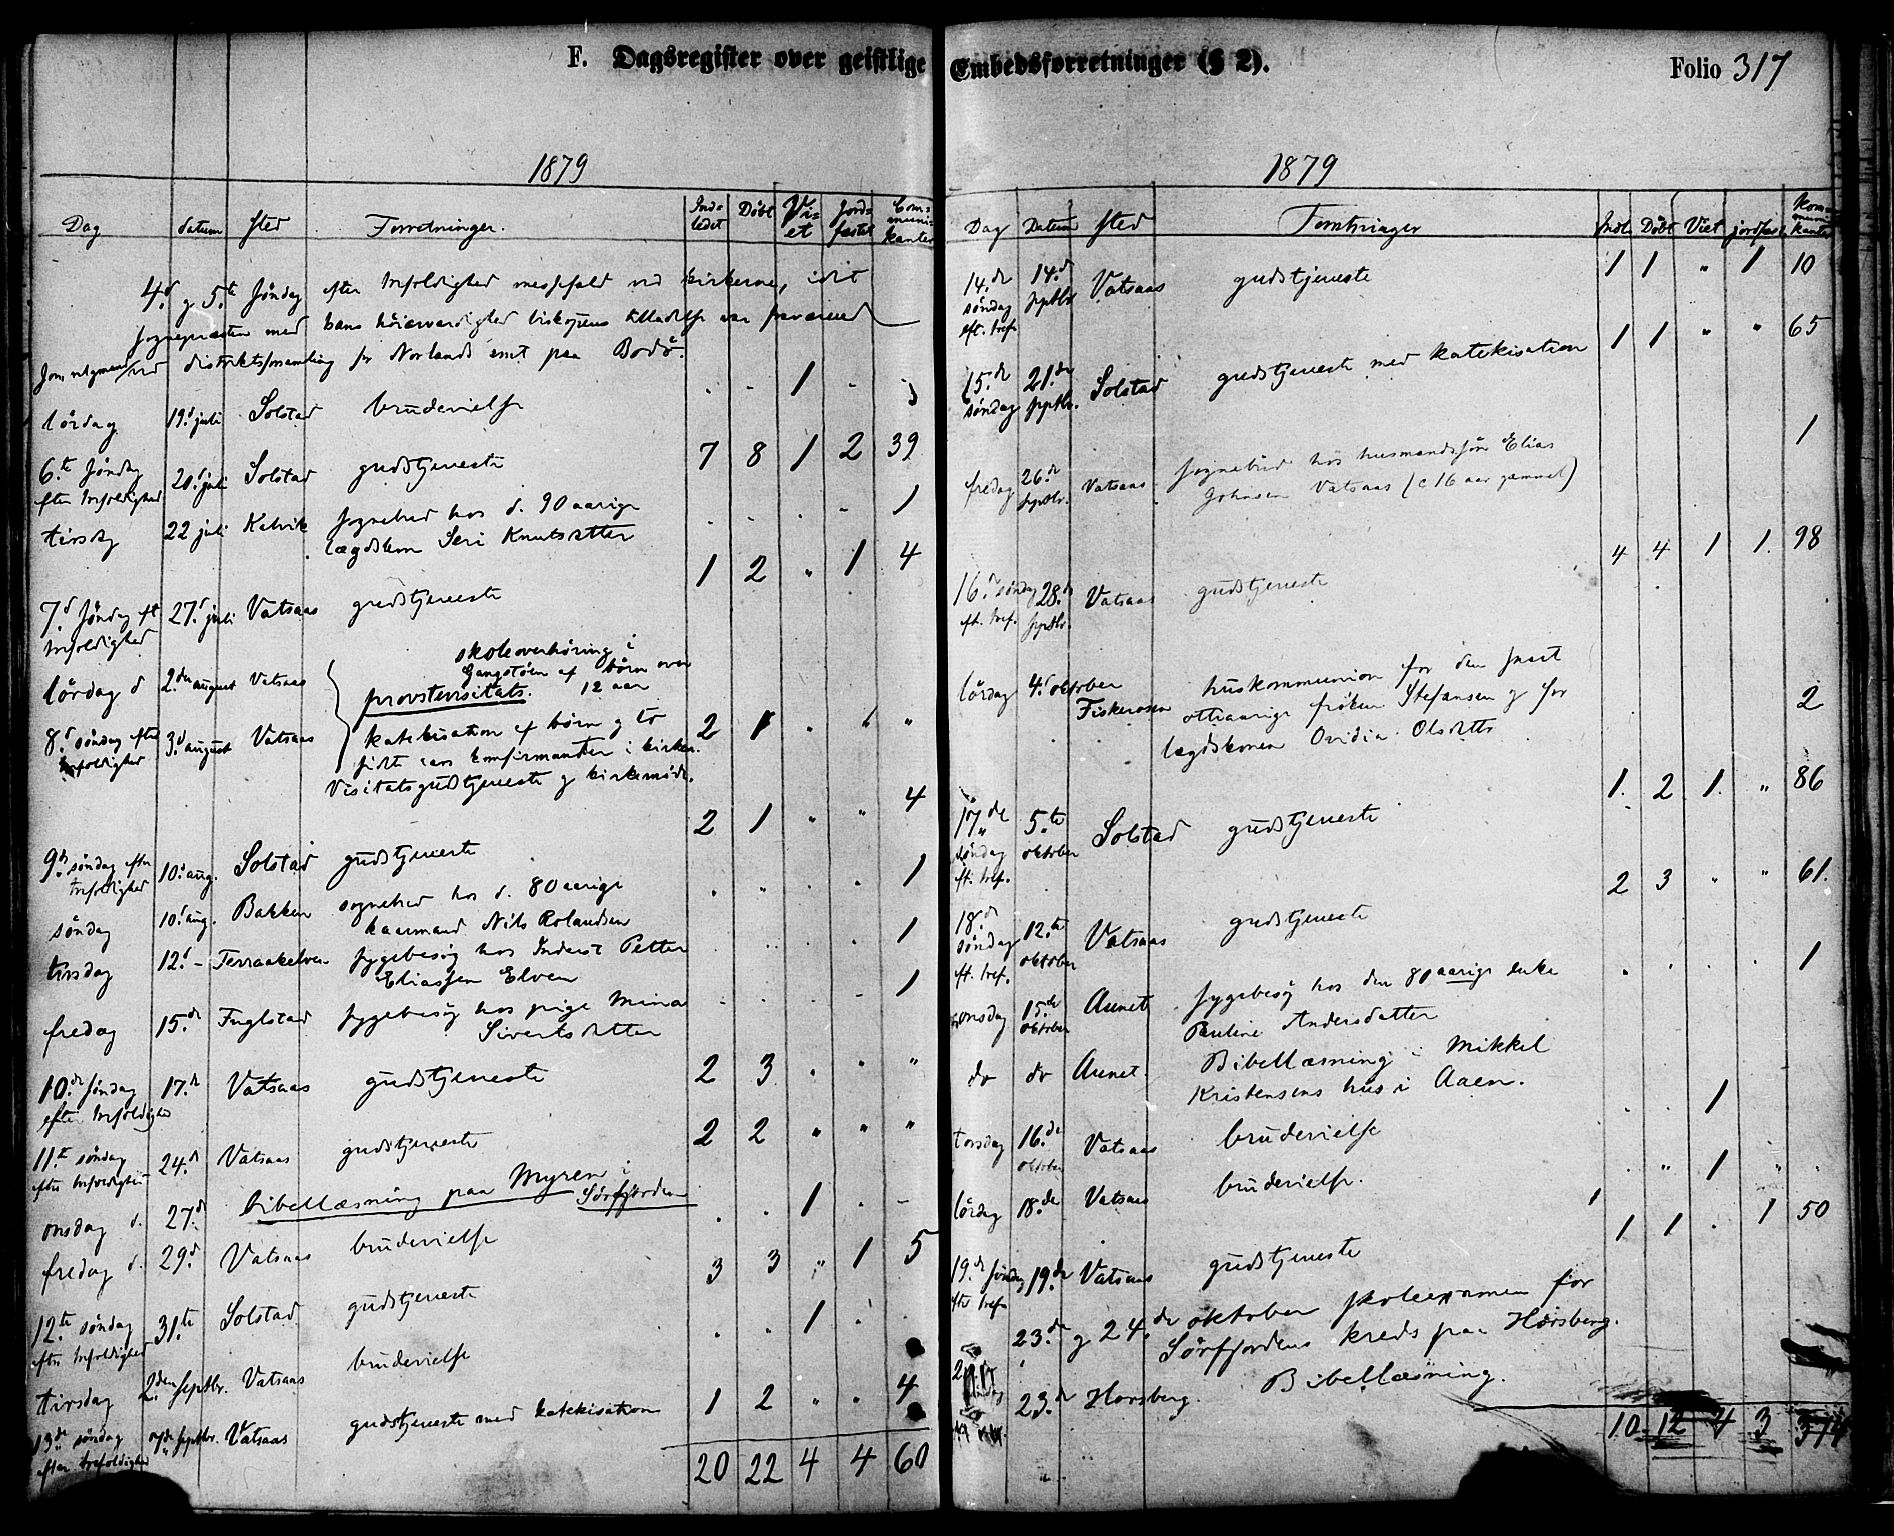 F. Dagsregister over geistlige Embedsforretninger (§ 2). Folio 317
1879
Dag datum Sted Forretninger. Ind-ledet Døbt Vi-et Jord-fæstet Com-muni-kanter
4.d og 5.te Søndag efter trefoldighed messefald ved kirkerne, idet
sognepræsten med hans høiærværdighed biskopens tilladelse var fraværende
som medlem ved distriktsforsamling for Norlands amt paa Bodø.
lördag 19.d juli Solstad brudevielse . . 1 . .
6.te Søndag efter trefoldighed 20.d juli Solstad gudstjeneste 7 8 1 2 39
tirsdag 22 juli Kalvik sognebud hos d. 90 aarige . . . . 1
lægdslem Seri Knutsdatter
7.d Søndag eft trefoldighed 27.d juli Vatsaas gudstjeneste 1 2 " 1 4
lördag d 2.den august Vatsaas skoleoverhøring i
Gangstøen af børn over
provstevisitats. 12 aar
8.d søndag efter trefoldighed 3.d august Vatsaas katekisation af børn og to 2 1 " " "
sidste aars konfirmander i kirken.
Visitatsgudstjeneste og kirkemøde.
9.de søndag efter trefoldighed 10.d aug. Solstad gudstjeneste 2 1 " " 4
søndag 10.d aug. Bakken sognebud hos d. 80 aarige . " " . 1
kaarmand Nils Rolandsen
tirsdag 12.d - Terraakelven sygebesøg hos Inderst Petter . . . . 1
Eliassen Elven
fredag 15.de Fuglstad sygebesøg hos pige Mina . . . . 1
Sivertsdatter
10.de søndag efter trefoldighed 17.d Vatsaas gudstjeneste 2 3 . " "
11.te søndag efter trefoldighed 24.d Vatsaas gudstjeneste 2 2 " " "
onsdag d. 27.d bibellæsning paa Myren i
Sørfjorden
fredag d. 29.d Vatsaas brudevielse . . 1 . -
12.te søndag efter trefoldighed 31.te Solstad gudstjeneste 3 3 " 1 5
tirsdag 2.den septbr. Vatsaas brudevielse . . 1 . .
13.de søndag efter trefoldighed 7.de septbr. Vatsaas gudstjeneste med katekisation 1 2 " " 4
20 22 4 4 60
1879
Dag Datum Sted Forretninger Indl. Døbt Viet jordfæst. kom-muni-kanter
14.de søndag eft. tref. 14.d septbr Vatsaas gudstjeneste 1 1 " 1 10
15.de søndag 21.de septbr. Solstad gudstjeneste med katekisation 1 1 " " 65
fredag 26.de septbr. Vatsaas sognebud hos husmandssøn Elias 1
Johnsen Vatsaas (c 16 aar gammel)
16.d søndag eft. tref. 28.de septbr. Vatsaas gudstjeneste 4 4 1 1. 98
lördag 4.d oktober Fiskerosen huskommunion for den snart 2
ottiaarige frøken Stefansen og for
lægdskonen Ovidia Olsdatter
17.de søndag eft. tref. 5.te oktober Solstad gudstjeneste 1. 2 1. " 86
18.de søndag eft. tref. 12.te oktober Vatsaas gudstjeneste 2 3 " " 61.
onsdag 15.de oktober Aunet sygebesøg hos den 80 aarige enke . . . . 1
Pauline Andersdatter
do do Aunet. Bibellæsning i Mikkel
Kristensens hus i Aaen.
torsdag 16.de oktober Vatsaas brudevielse . . 1
lördag 18.de Vatsaas brudevielse. . " 1 " .
19.de søndag efter tref. 19.de Vatsaas gudstjeneste 1 1 . 1 50
23.de og 24.de oktober skoleexamen for
Sørfjordens kreds paa Horsberg.
23.de Horsberg. Bibellæsning.
10 12 4 3 374